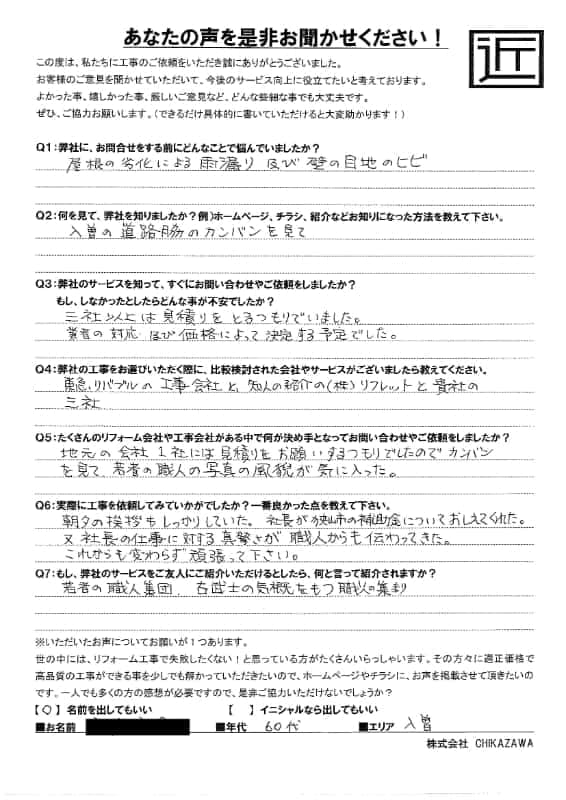 あなたの声を是非お聞かせください！
近
この度は、私たちに工事のご依頼をいただき誠にありがとうございました。
お客様のご意見を聞かせていただいて、今後のサービス向上に役立てたいと考えております。
よかった事、嬉しかった事、厳しいご意見など、どんな些細な事でも大丈夫です。
ぜひ、ご協力お願いします。（できるだけ具体的に書いていただけると大変助かります！）
Q1：弊社に、お問合せをする前にどんなことで悩んでいましたか？
屋根の劣化による雨漏り 及び 壁の目地のヒビ
Q2：何を見て、弊社を知りましたか？例）ホームページ、チラシ、紹介などお知りになった方法を教えて下さい。
入曽の道路脇のカンバンを見て
Q3：弊社のサービスを知って、すぐにお問い合わせやご依頼をしましたか？
もし、しなかったとしたらどんな事が不安でしたか？
三社以上は見積りをとるつもりでいました。
業者の対応及び価格によって決定する予定でした。
Q4：弊社の工事をお選びいただく際に、比較検討された会社やサービスがございましたら教えてください。
東急リバブルの工事会社と、知人の紹介の（株）リフレットと貴社の
三社
Q5：たくさんのリフォーム会社や工事会社がある中で何が決め手となってお問い合わせやご依頼をしましたか？
地元の会社1社には見積りをお願いするつもりでしたのでカンバン
を見て、若者の職人の写真の風貌が気に入った。
Q6：実際に工事を依頼してみていかがでしたか？一番良かった点を教えて下さい。
朝夕の挨拶もしっかりしていた。社長が狭山市の補助金についておしえてくれた。
又社長の仕事に対する真摯さが職人からも伝わってきた。
これからも変わらず頑張って下さい。
Q7：もし、弊社のサービスをご友人にご紹介いただけるとしたら、何と言って紹介されますか？
若者の職人集団、古武士の気概をもつ職人の集まり
※いただいたお声についてお願いが１つあります。
世の中には、リフォーム工事で失敗したくない！と思っている方がたくさんいらっしゃいます。その方々に適正価格で
高品質の工事ができる事を少しでも解かっていただきたいので、ホームページやチラシに、お声を掲載させて頂きたいの
です。一人でも多くの方の感想が必要ですので、是非ご協力いただけないでしょうか？
【〇】名前を出してもいい 【 】イニシャルなら出してもいい
■お名前 ■年代 60代 ■エリア 入曽
株式会社 CHIKAZAWA